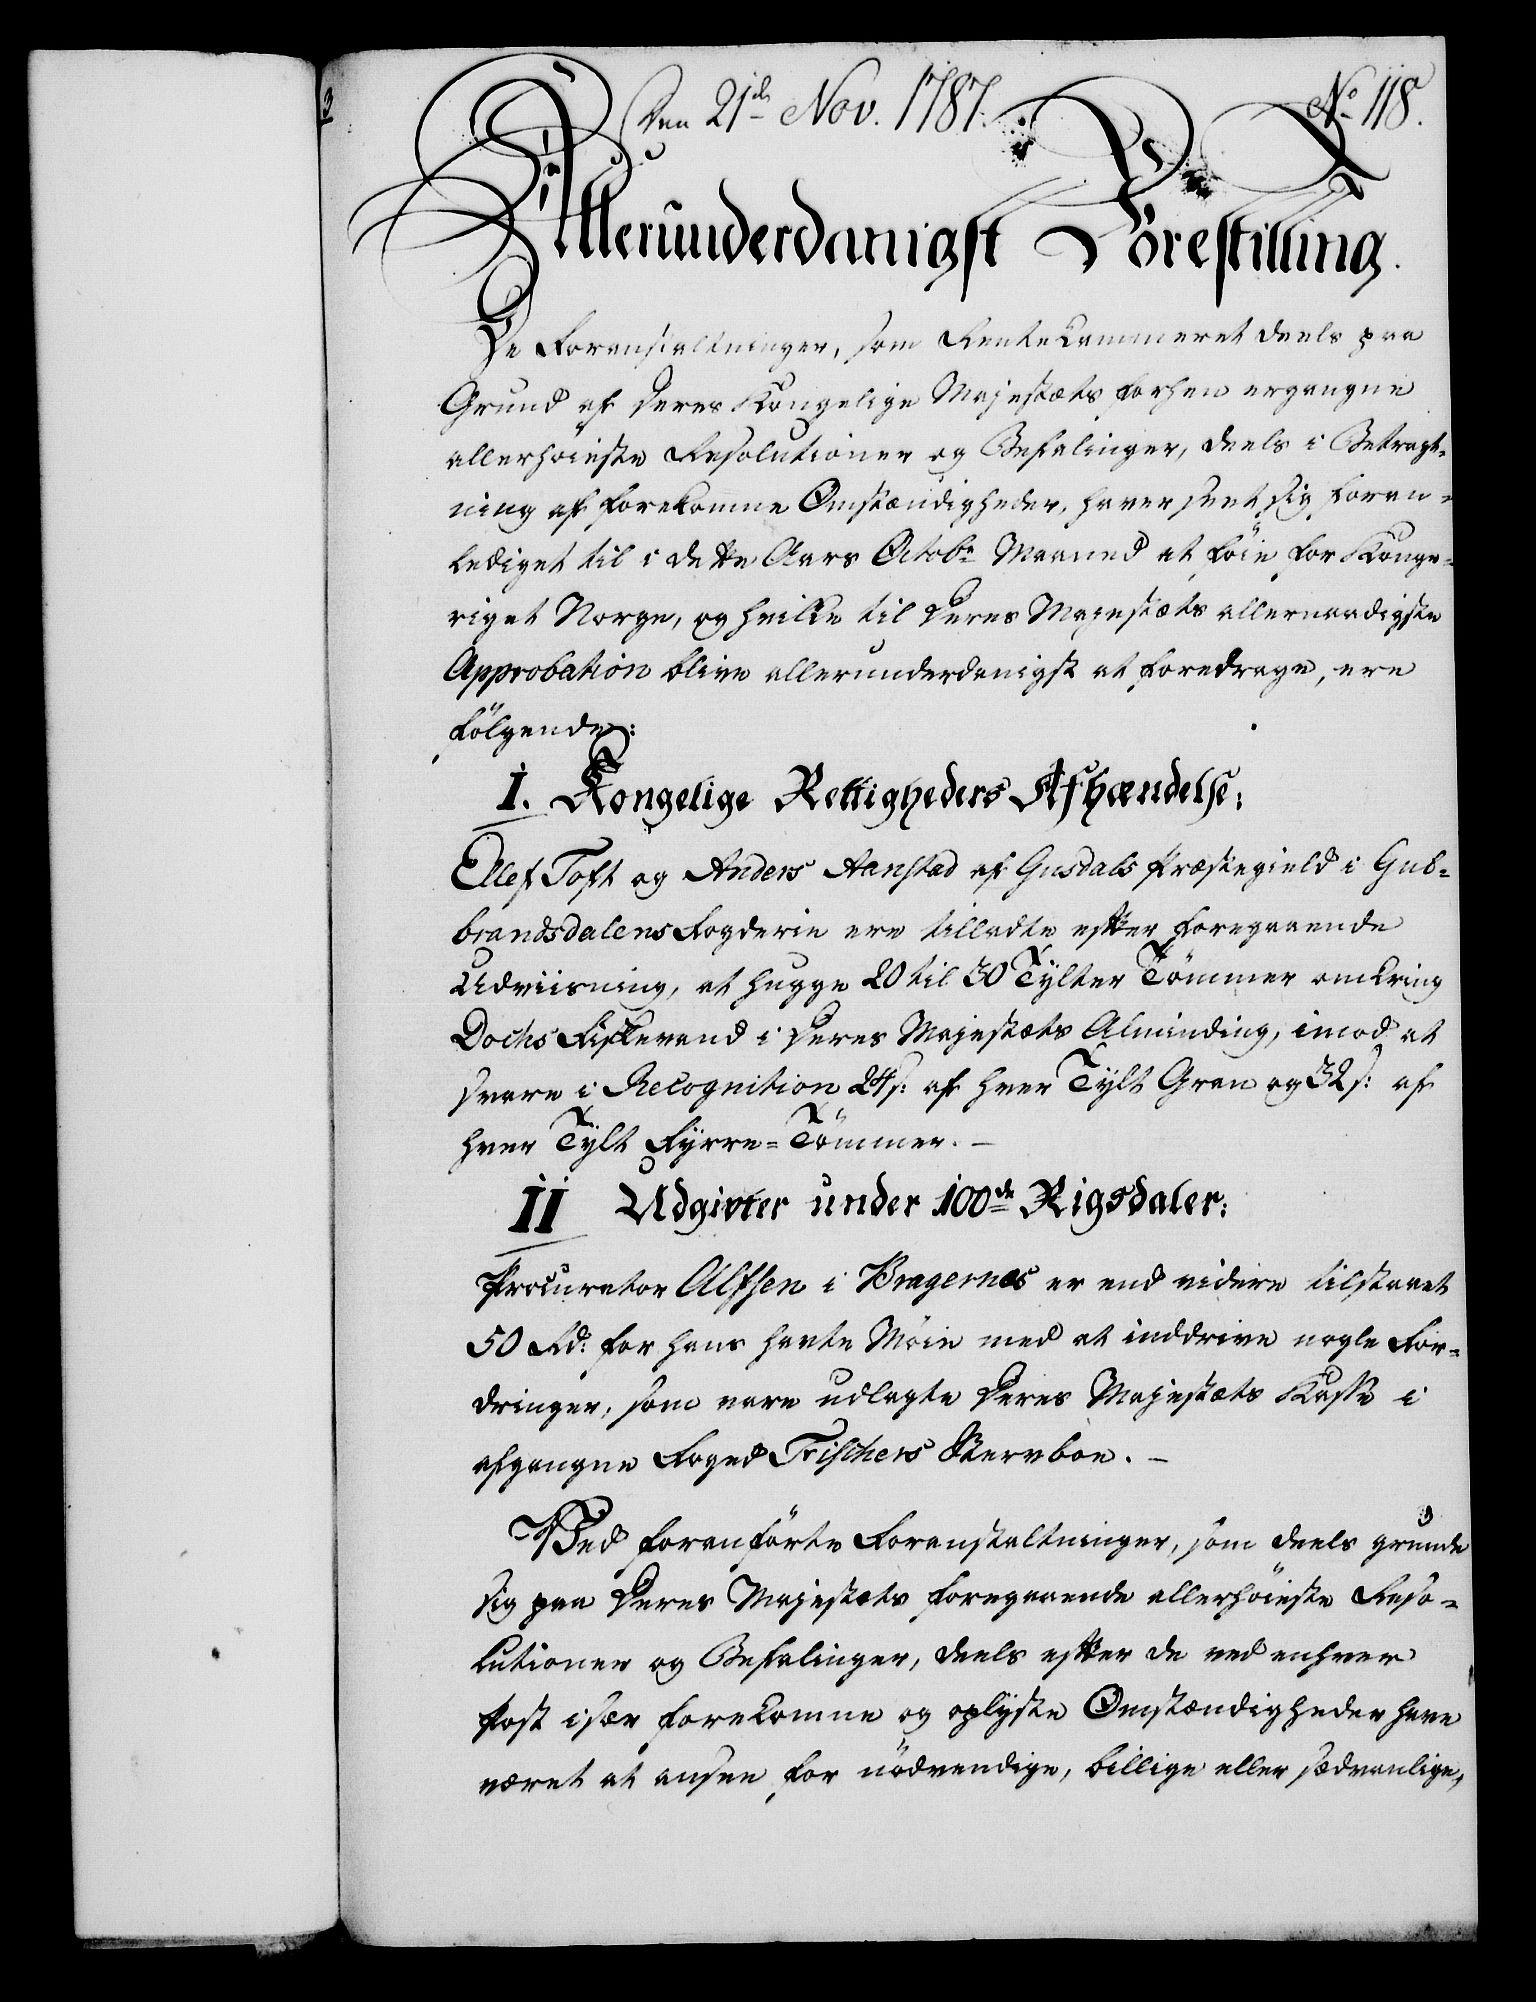 Den 21de Nov. 1787.
No 118.
Allerunderdanigst Forestilling.
De Foranstaltninger, som Rentekammeret deels paa
Grund af Deres Kongelige Majestæts forhen ergangne
allerhöieste Resolutioner og Befalinger, deels i Betragt-
ning af forekomne Omstændigheder, haver seet sig foran-
lediget til i dette Aars Octobr Maaned at föie for Konge-
riget Norge, og hvilke til Deres Majestæts allernaadigste
Approbation blive allerunderdanigst at foredrage, ere
fölgende:
I. Kongelige Rettigheders Afhændelse:
Ellef Toft og Anders Aanstad af Gusdals Præstegield i Gul-
brandsdalens Fogderie ere tilladte efter foregaaende
Udviisning, at hugge 20 til 30 Tylter Tömmer omkring
Dochs Fiskevand i Deres Majestæts Alminding, imod at
svare i Recognition 24 s: af hver Tylt Gran og 32 s: af
hver Tylt Fyrre-Tömmer. -
II Udgivter under 100de Rigsdaler:
Procurator Alfsen i Bragernæs er end videre tilstaaet
50 Rd: for hans havte Möie med at inddrive nogle For-
dringer, som vare udlagte Deres Majestæts Kasse i
afgangne Foged Frischers Stervboe. -
Ved foranförte Foranstaltninger, som deels grunde
sig paa Deres Majestæts foregaaende allerhöieste Reso-
lutioner og Befalinger, deels efter de ved enhver
Post især forekomne og oplyste Omstændigheder have
været at ansee for nödvendige, billige eller sædvanlige,